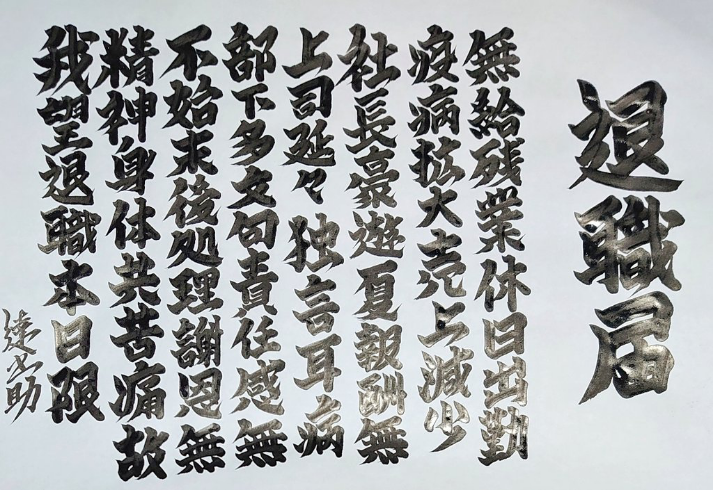 退職届
無給残業休日出勤
疫病拡大売上減少
社長豪遊夏報酬無
上司延々独言耳病
部下多文句責任感無
不始末後処理謝恩無
精神身体共苦痛故
我望退職本日限